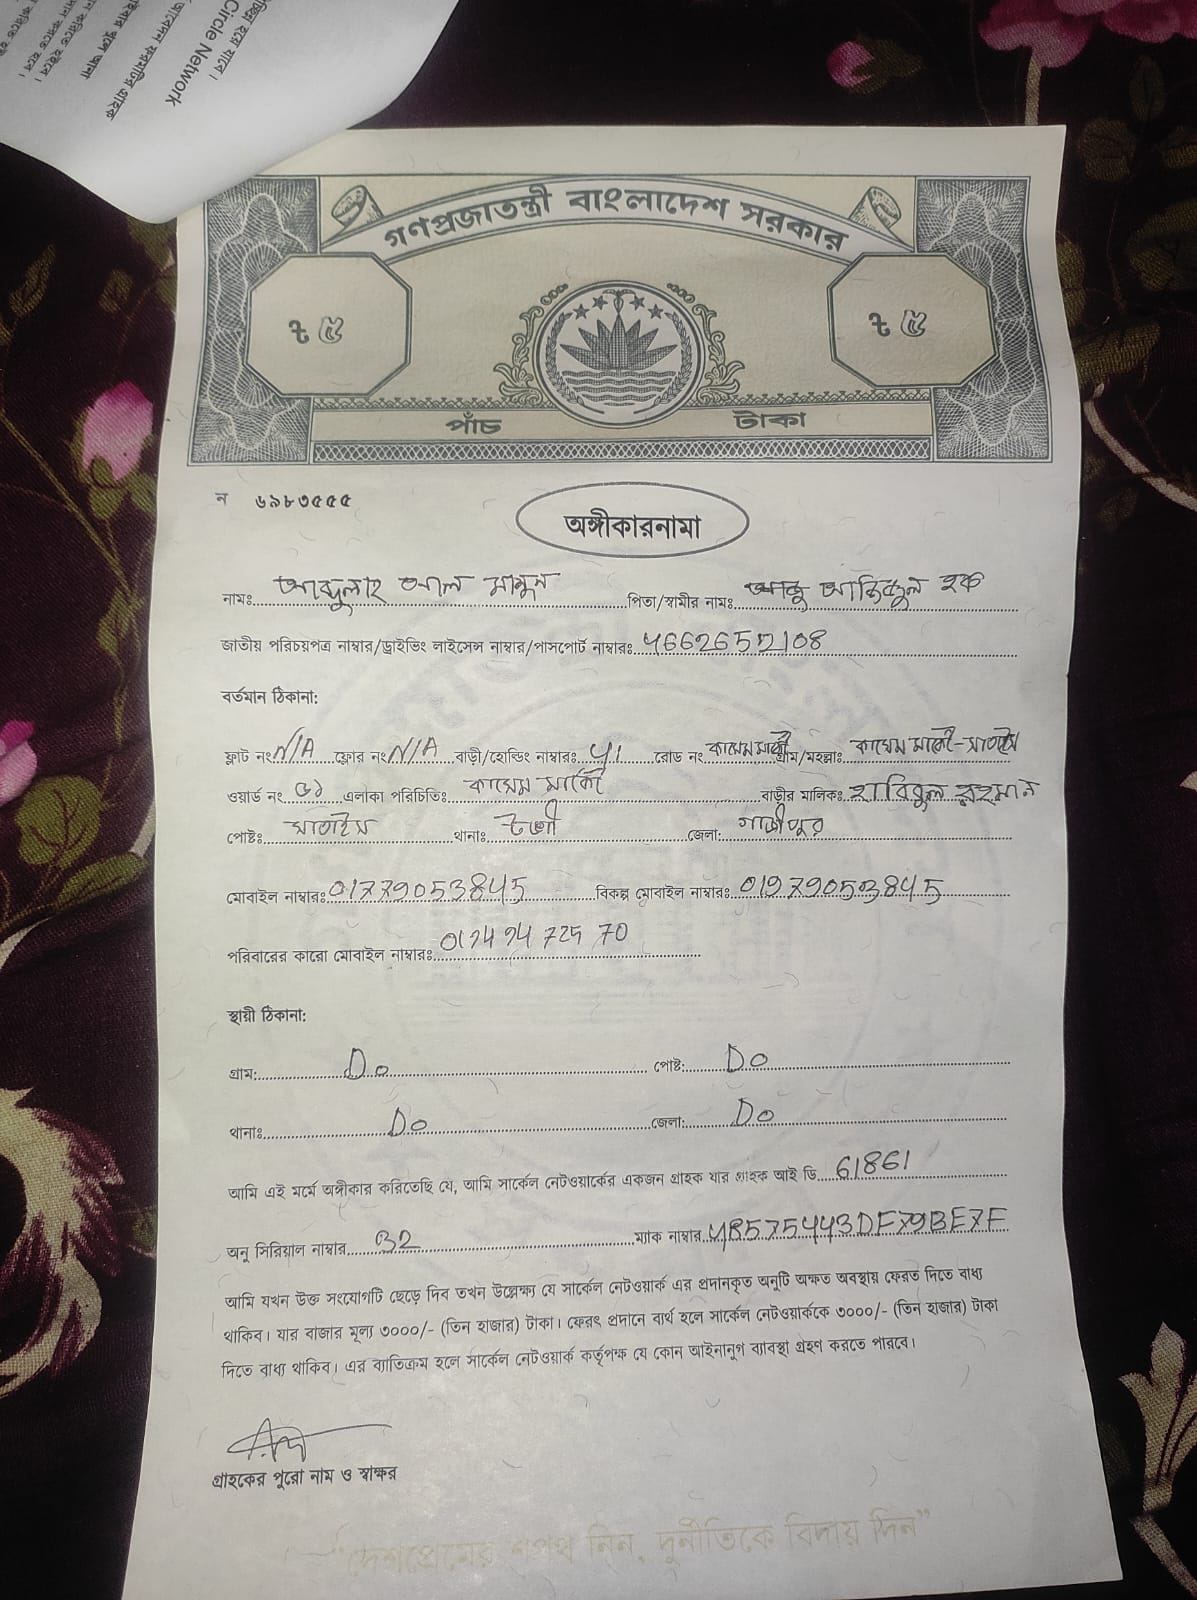 Circle Network
গণপ্রজাতন্ত্রী বাংলাদেশ সরকার
৳ ৫ ৳ ৫
পাঁচ টাকা
ন ৬৯৮৩৫৫৫
অঙ্গীকারনামা
নামঃ আব্দুলাহ আল মামুন পিতা/স্বামীর নামঃ আবু আজিজুল হক
জাতীয় পরিচয়পত্র নাম্বার/ড্রাইভিং লাইসেন্স নাম্বার/পাসপোর্ট নাম্বারঃ 4662652108
বর্তমান ঠিকানা:
ফ্লাট নং N/A ফ্লোর নং N/A বাড়ী/হোল্ডিং নাম্বারঃ 41 রোড নং গ্রাম/মহল্লাঃ
ওয়ার্ড নং ৫১ এলাকা পরিচিতিঃ বাড়ীর মালিকঃ হাবিবুল রহমান
পোষ্টঃ সাতাইস থানাঃ টঙ্গী জেলা: গাজীপুর
মোবাইল নাম্বারঃ 01779053845 বিকল্প মোবাইল নাম্বারঃ 01979053845
পরিবারের কারো মোবাইল নাম্বারঃ
স্থায়ী ঠিকানা:
গ্রাম: Do পোষ্ট: Do
থানাঃ Do জেলা: Do
আমি এই মর্মে অঙ্গীকার করিতেছি যে, আমি সার্কেল নেটওয়ার্কের একজন গ্রাহক যার গ্রাহক আই ডি 61861
অনু সিরিয়াল নাম্বার 32 ম্যাক নাম্বার
আমি যখন উক্ত সংযোগটি ছেড়ে দিব তখন উল্লেক্ষ্য যে সার্কেল নেটওয়ার্ক এর প্রদানকৃত অনুটি অক্ষত অবস্থায় ফেরত দিতে বাধ্য
থাকিব। যার বাজার মূল্য ৩০০০/- (তিন হাজার) টাকা। ফেরৎ প্রদানে ব্যর্থ হলে সার্কেল নেটওয়ার্ককে ৩০০০/- (তিন হাজার) টাকা
দিতে বাধ্য থাকিব। এর ব্যাতিক্রম হলে সার্কেল নেটওয়ার্ক কর্তৃপক্ষ যে কোন আইনানুগ ব্যাবস্থা গ্রহণ করতে পারবে।
গ্রাহকের পুরো নাম ও স্বাক্ষর
“দেশপ্রেমের শপথ নিন, দুর্নীতিকে বিদায় দিন”